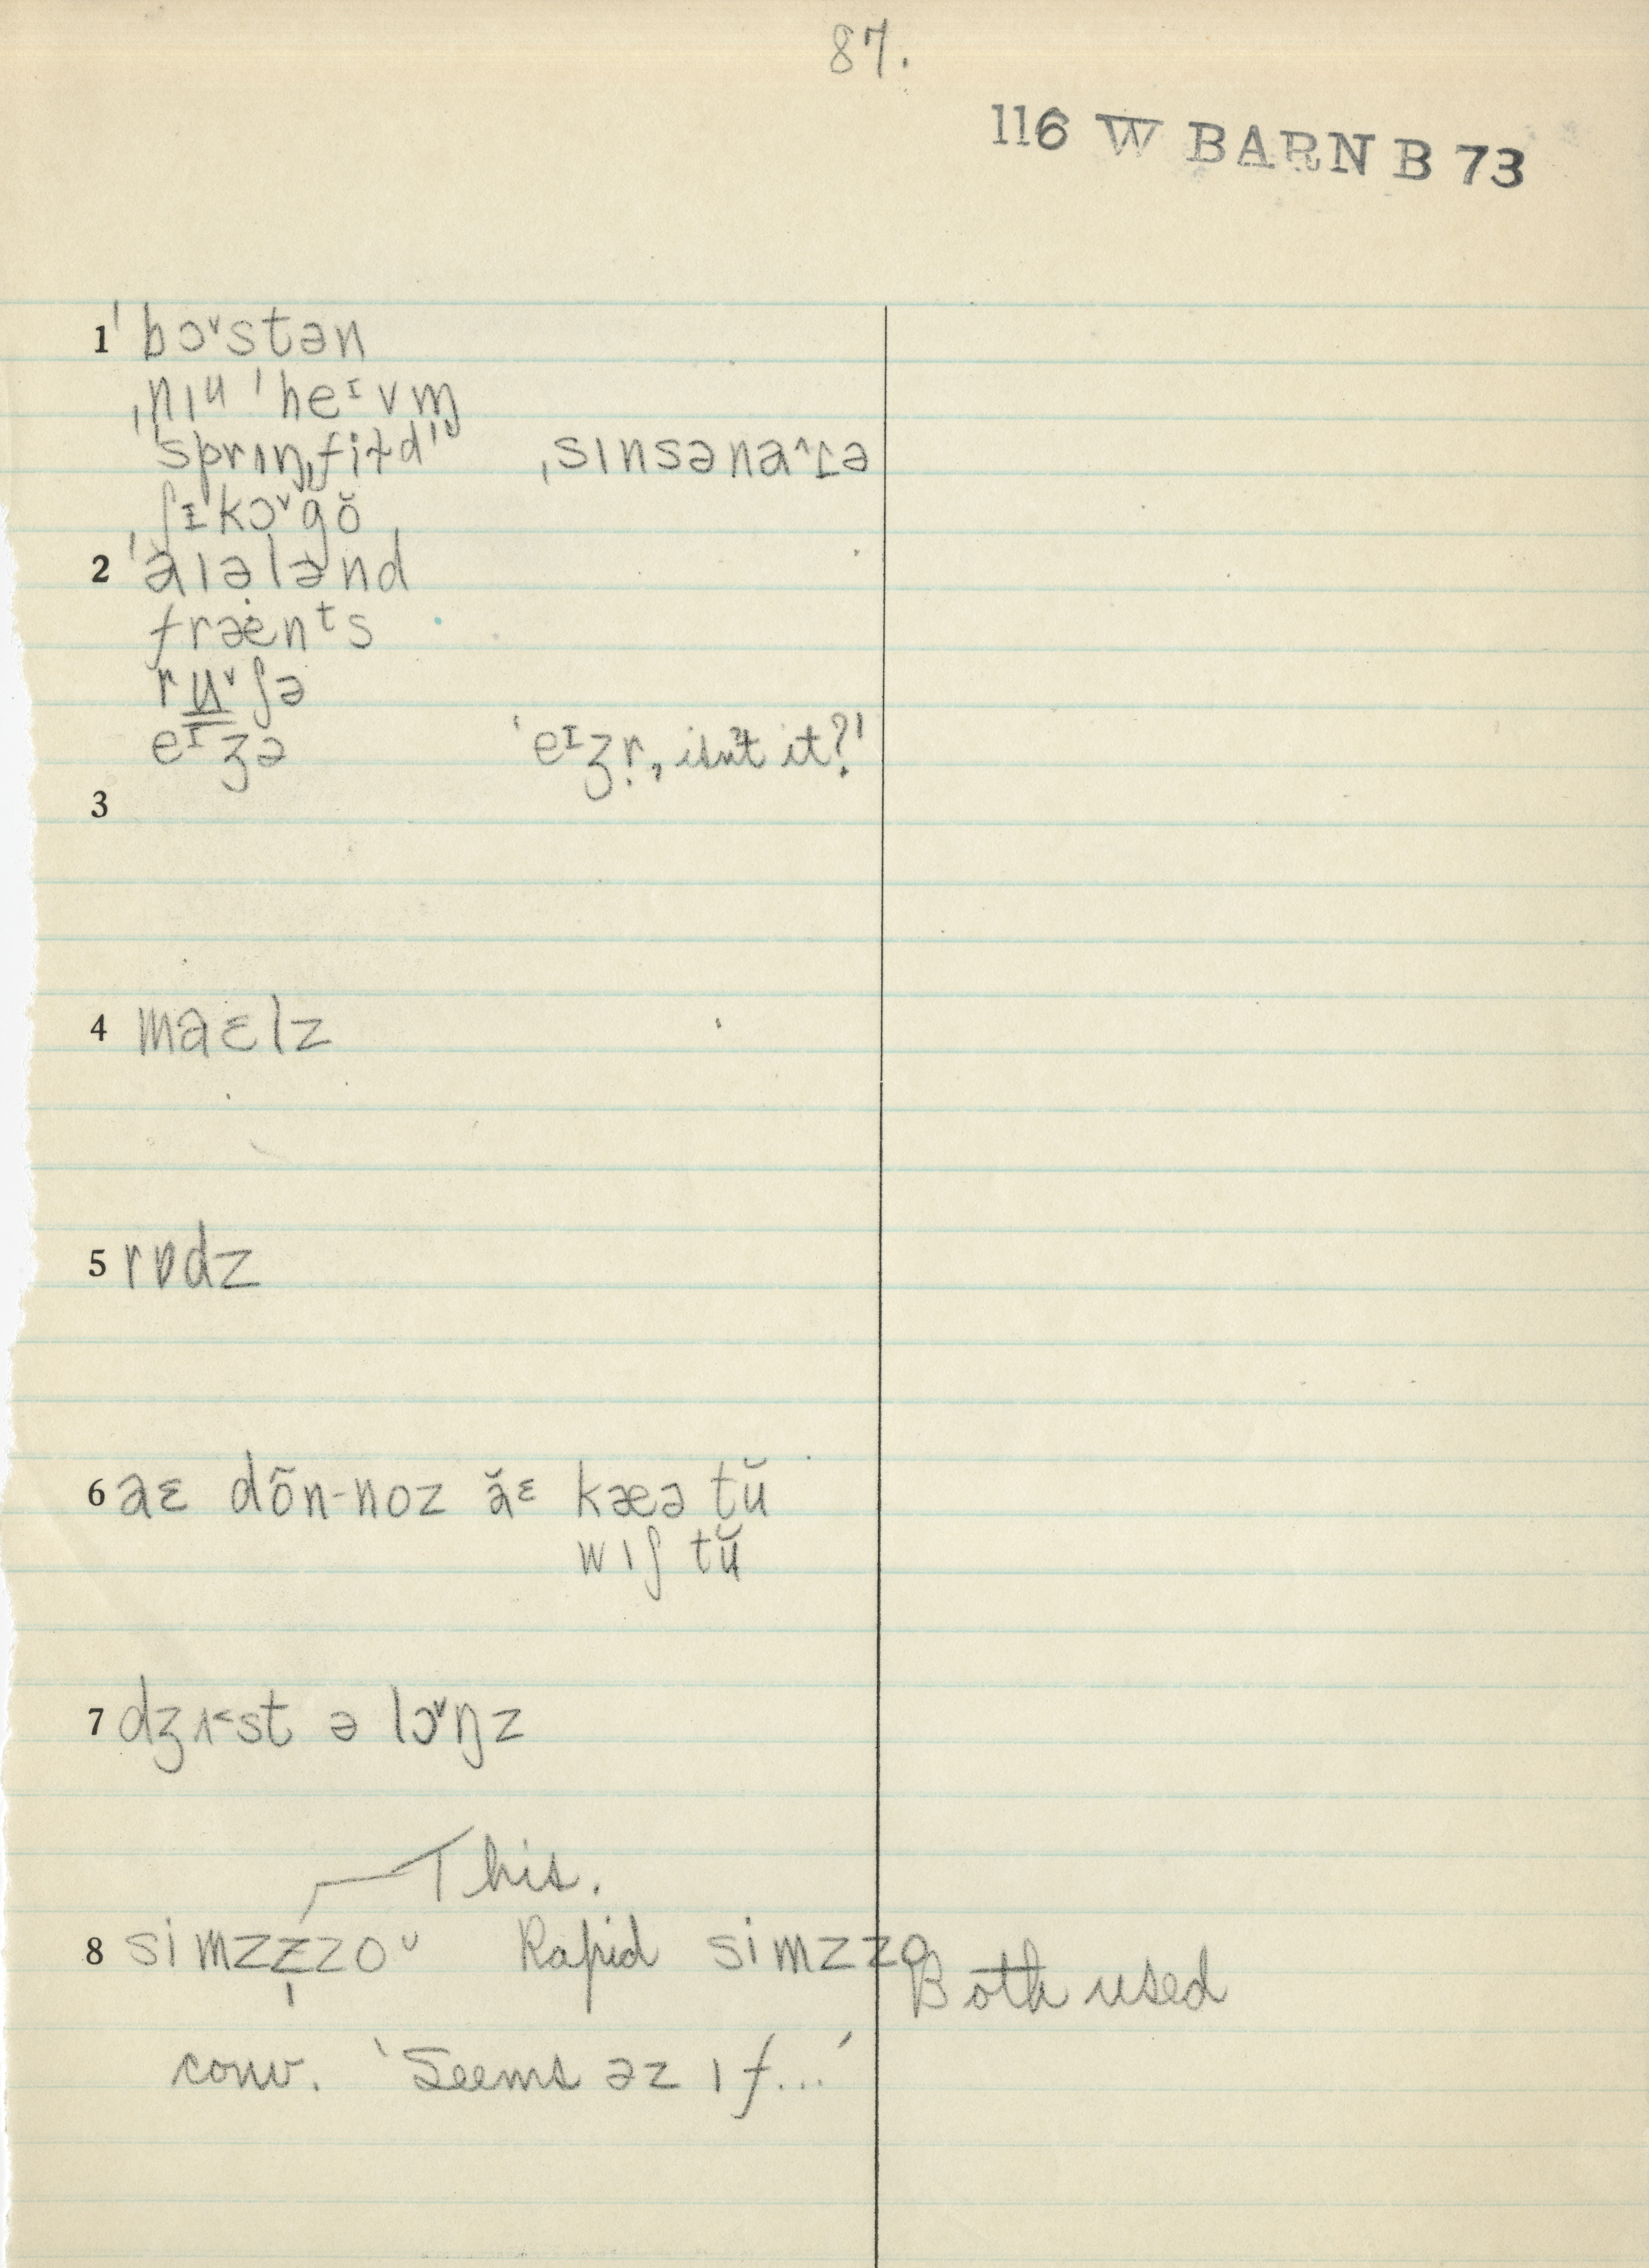 87.
116 W BARN B 73
1 ˈbɔ˅stən
ˌnɪu ˈheᶦvm̩
ˈsprɪŋˌfiɫd ˌsɪnsəna^ɾə
ˌʃɪˈkɔ˅gŏ
2 ˈaɪələnd
fræenᵗs
ru˅ʃə
eᶦʒə ‘eᶦʒr̩, isn't it?’
3
4 maɛlz
5 rɒdz
6 aɛ dõn-noz ăᵋ kæə tŭ
wɪʃ tŭ
7 dʒʌ˂st ə lɔ˅ŋz
This.
8 simzz̩zoᵁ Rapid simzzo Both used
conv. ‘Seems əz ɪf...’